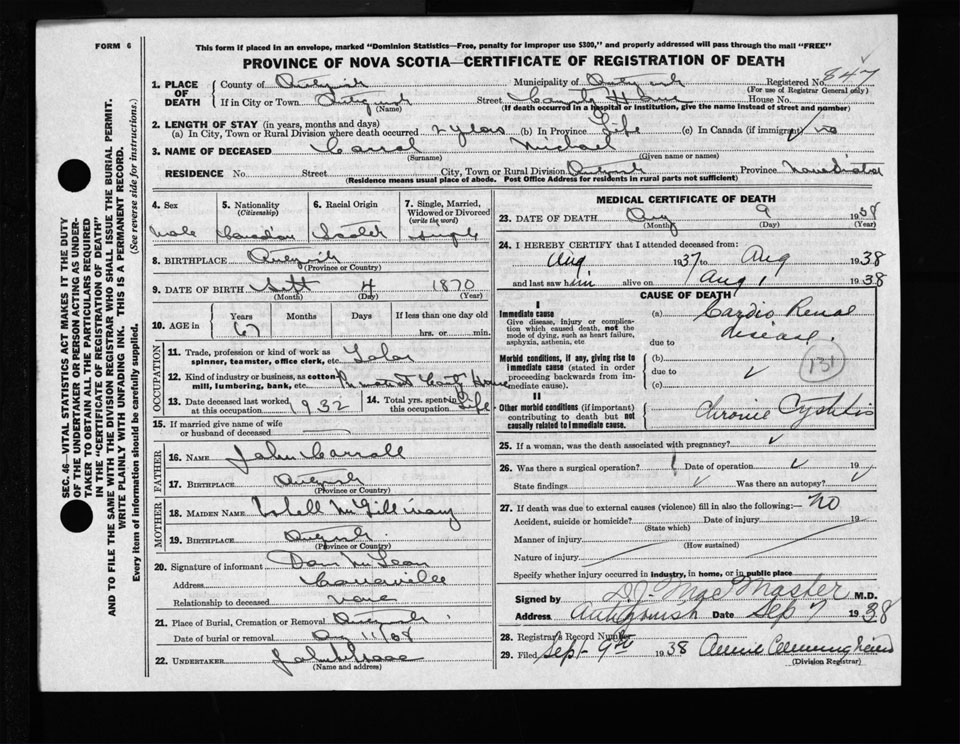 FORM 6
This form if placed in an envelope, marked "Dominion Statistics—Free, penalty for improper use $300," and properly addressed will pass through the mail "FREE"
PROVINCE OF NOVA SCOTIA—CERTIFICATE OF REGISTRATION OF DEATH
SEC. 46—VITAL STATISTICS ACT MAKES IT THE DUTY
OF THE UNDERTAKER OR PERSON ACTING AS UNDER-
TAKER TO OBTAIN ALL THE PARTICULARS REQUIRED
IN THE "CERTIFICATE OF REGISTRATION OF DEATH"
AND TO FILE THE SAME WITH THE DIVISION REGISTRAR WHO SHALL ISSUE THE BURIAL PERMIT.
WRITE PLAINLY WITH UNFADING INK. THIS IS A PERMANENT RECORD.
Every item of information should be carefully supplied. (See reverse side for instructions.)
1. PLACE OF DEATH County of Antigonish Municipality of Antigonish Registered No. 847
(For use of Registrar General only)
If in City or Town Antigonish Street County Home House No.
(Name) (If death occurred in a hospital or institution, give the name instead of street and number)
2. LENGTH OF STAY (in years, months and days)
(a) In City, Town or Rural Division where death occurred 2 years (b) In Province Life (c) In Canada (if immigrant) no
3. NAME OF DECEASED Carrol Michael
(Surname) (Given name or names)
RESIDENCE No. Street City, Town or Rural Division Antigonish Province Nova Scotia
(Residence means usual place of abode. Post Office Address for residents in rural parts not sufficient)
4. Sex 5. Nationality (Citizenship) 6. Racial Origin 7. Single, Married, Widowed or Divorced (write the word)
Male Canadian single
8. BIRTHPLACE Antigonish
(Province or Country)
9. DATE OF BIRTH Sept 4 1870
(Month) (Day) (Year)
10. AGE in Years Months Days If less than one day old
67 hrs. or min.
OCCUPATION
11. Trade, profession or kind of work as spinner, teamster, office clerk, etc. Labor
12. Kind of industry or business, as cotton mill, lumbering, bank, etc. House
13. Date deceased last worked at this occupation 1932 14. Total yrs. spent in this occupation Life
15. If married give name of wife or husband of deceased
FATHER
16. NAME John Carroll
17. BIRTHPLACE Antigonish
(Province or Country)
MOTHER
18. MAIDEN NAME McGillivray
19. BIRTHPLACE Antigonish
(Province or Country)
20. Signature of informant Dan McLean
Address
Relationship to deceased none
21. Place of Burial, Cremation or Removal Antigonish
Date of burial or removal Aug 11/38
22. UNDERTAKER
(Name and address)
MEDICAL CERTIFICATE OF DEATH
23. DATE OF DEATH Aug 9 1938
(Month) (Day) (Year)
24. I HEREBY CERTIFY that I attended deceased from:
Aug 1937 to Aug 1938
and last saw him alive on Aug 1 1938
CAUSE OF DEATH
I
Immediate cause
Give disease, injury or complication which caused death, not the mode of dying, such as heart failure, asphyxia, asthenia, etc
(a) Cardio Renal disease.
due to
Morbid conditions, if any, giving rise to immediate cause (stated in order proceeding backwards from immediate cause).
(b)
due to
(c)
131
II
Other morbid conditions (if important) contributing to death but not causally related to immediate cause.
Chronic Cystitis
25. If a woman, was the death associated with pregnancy?
26. Was there a surgical operation? Date of operation 19
State findings Was there an autopsy?
27. If death was due to external causes (violence) fill in also the following:— No
Accident, suicide or homicide? Date of injury 19
(State which)
Manner of injury
(How sustained)
Nature of injury
Specify whether injury occurred in industry, in home, or in public place
Signed by D.J. MacMaster M.D.
Address Antigonish Date Sep 7 1938
28. Registrar's Record Number
29. Filed Sept 9th 1938 Annie Cunningham
(Division Registrar)